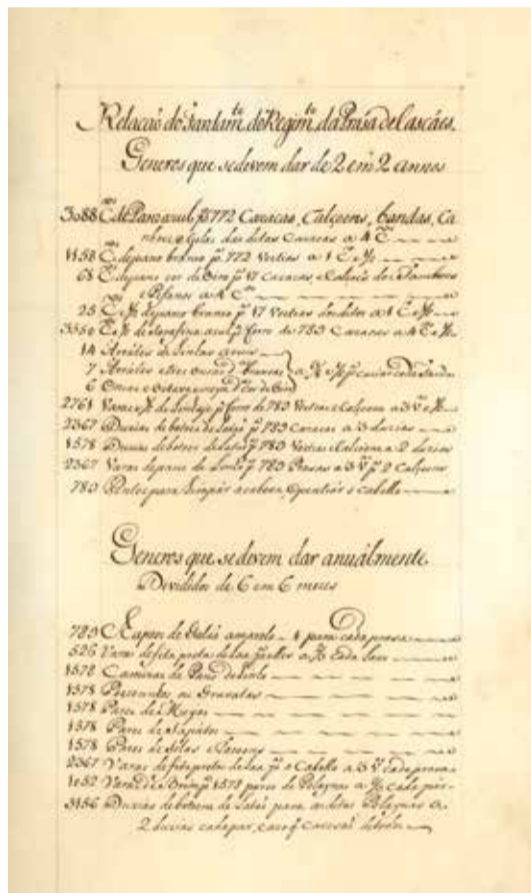 Relacaõ do fardamto do Regimto da Prasa de Cascáes.
Generos que se devem dar de 2 em 2 annos
3088 Cdos de Pano azul pa 772 Cazacas, Calçoens, bandas, Ca
nhoens e golas das ditas Cazacas a 4 C
1158 Cdos de pano branco pa 772 Vestias a 1 C e 1/2
68 Cdos de pano cor de Oiro pa 17 Cazacas e Calçois dos Tambores
e Pifanos a 4 Cdos
25 C e 1/2 de pano branco pa 17 Vestias dos ditos a 1 C e 1/2
de Sarafina azul pa forro de 789 Cazacas a 4 C e 1/2
14 Arrates de Linhas azues
7 Arrates e tres onças de brancas
6 Oncas e Outava e meya de Cor de Oiro
2761 Varas e 1/2 de Linhaje pa forro de 789 Vestias e Calçoens a 3 V e 1/2
2367 Duzias de botoes de Latão pa 789 Cazacas a 3 duzias
1578 Duzias de botoes de Latão pa 789 Vestias e Calçoens a 2 duzias
2367 Varas de pano de Linho pa 789
789 Pentes para limpar a cabeca, e pentiar o cabello
Generos que se devem dar anuálmente
Devididos de 6 em 6 mezes
789 Xapeos de Galaõ amarelo - 1 para cada prasa
526 Varas de fita preta de laa cada hum
1578 Camizas de Pano de linho
1578 Pescosinhos ou Gravatas
1578 Pares de Meyas
1578 Pares de Sapatos
1578 Pares de Solas e Tacoens
2367 Varas de fita preta de laa pa o Cabello a 3 V cada prasa
1052 Varas de Brim pa 1578 pares de Polaynas a 2/3 cada par
3156 Duzias de botoens de Latão para as ditas Polaynas a
2 duzias cada par, cazo q̃ caresaõ de botoens